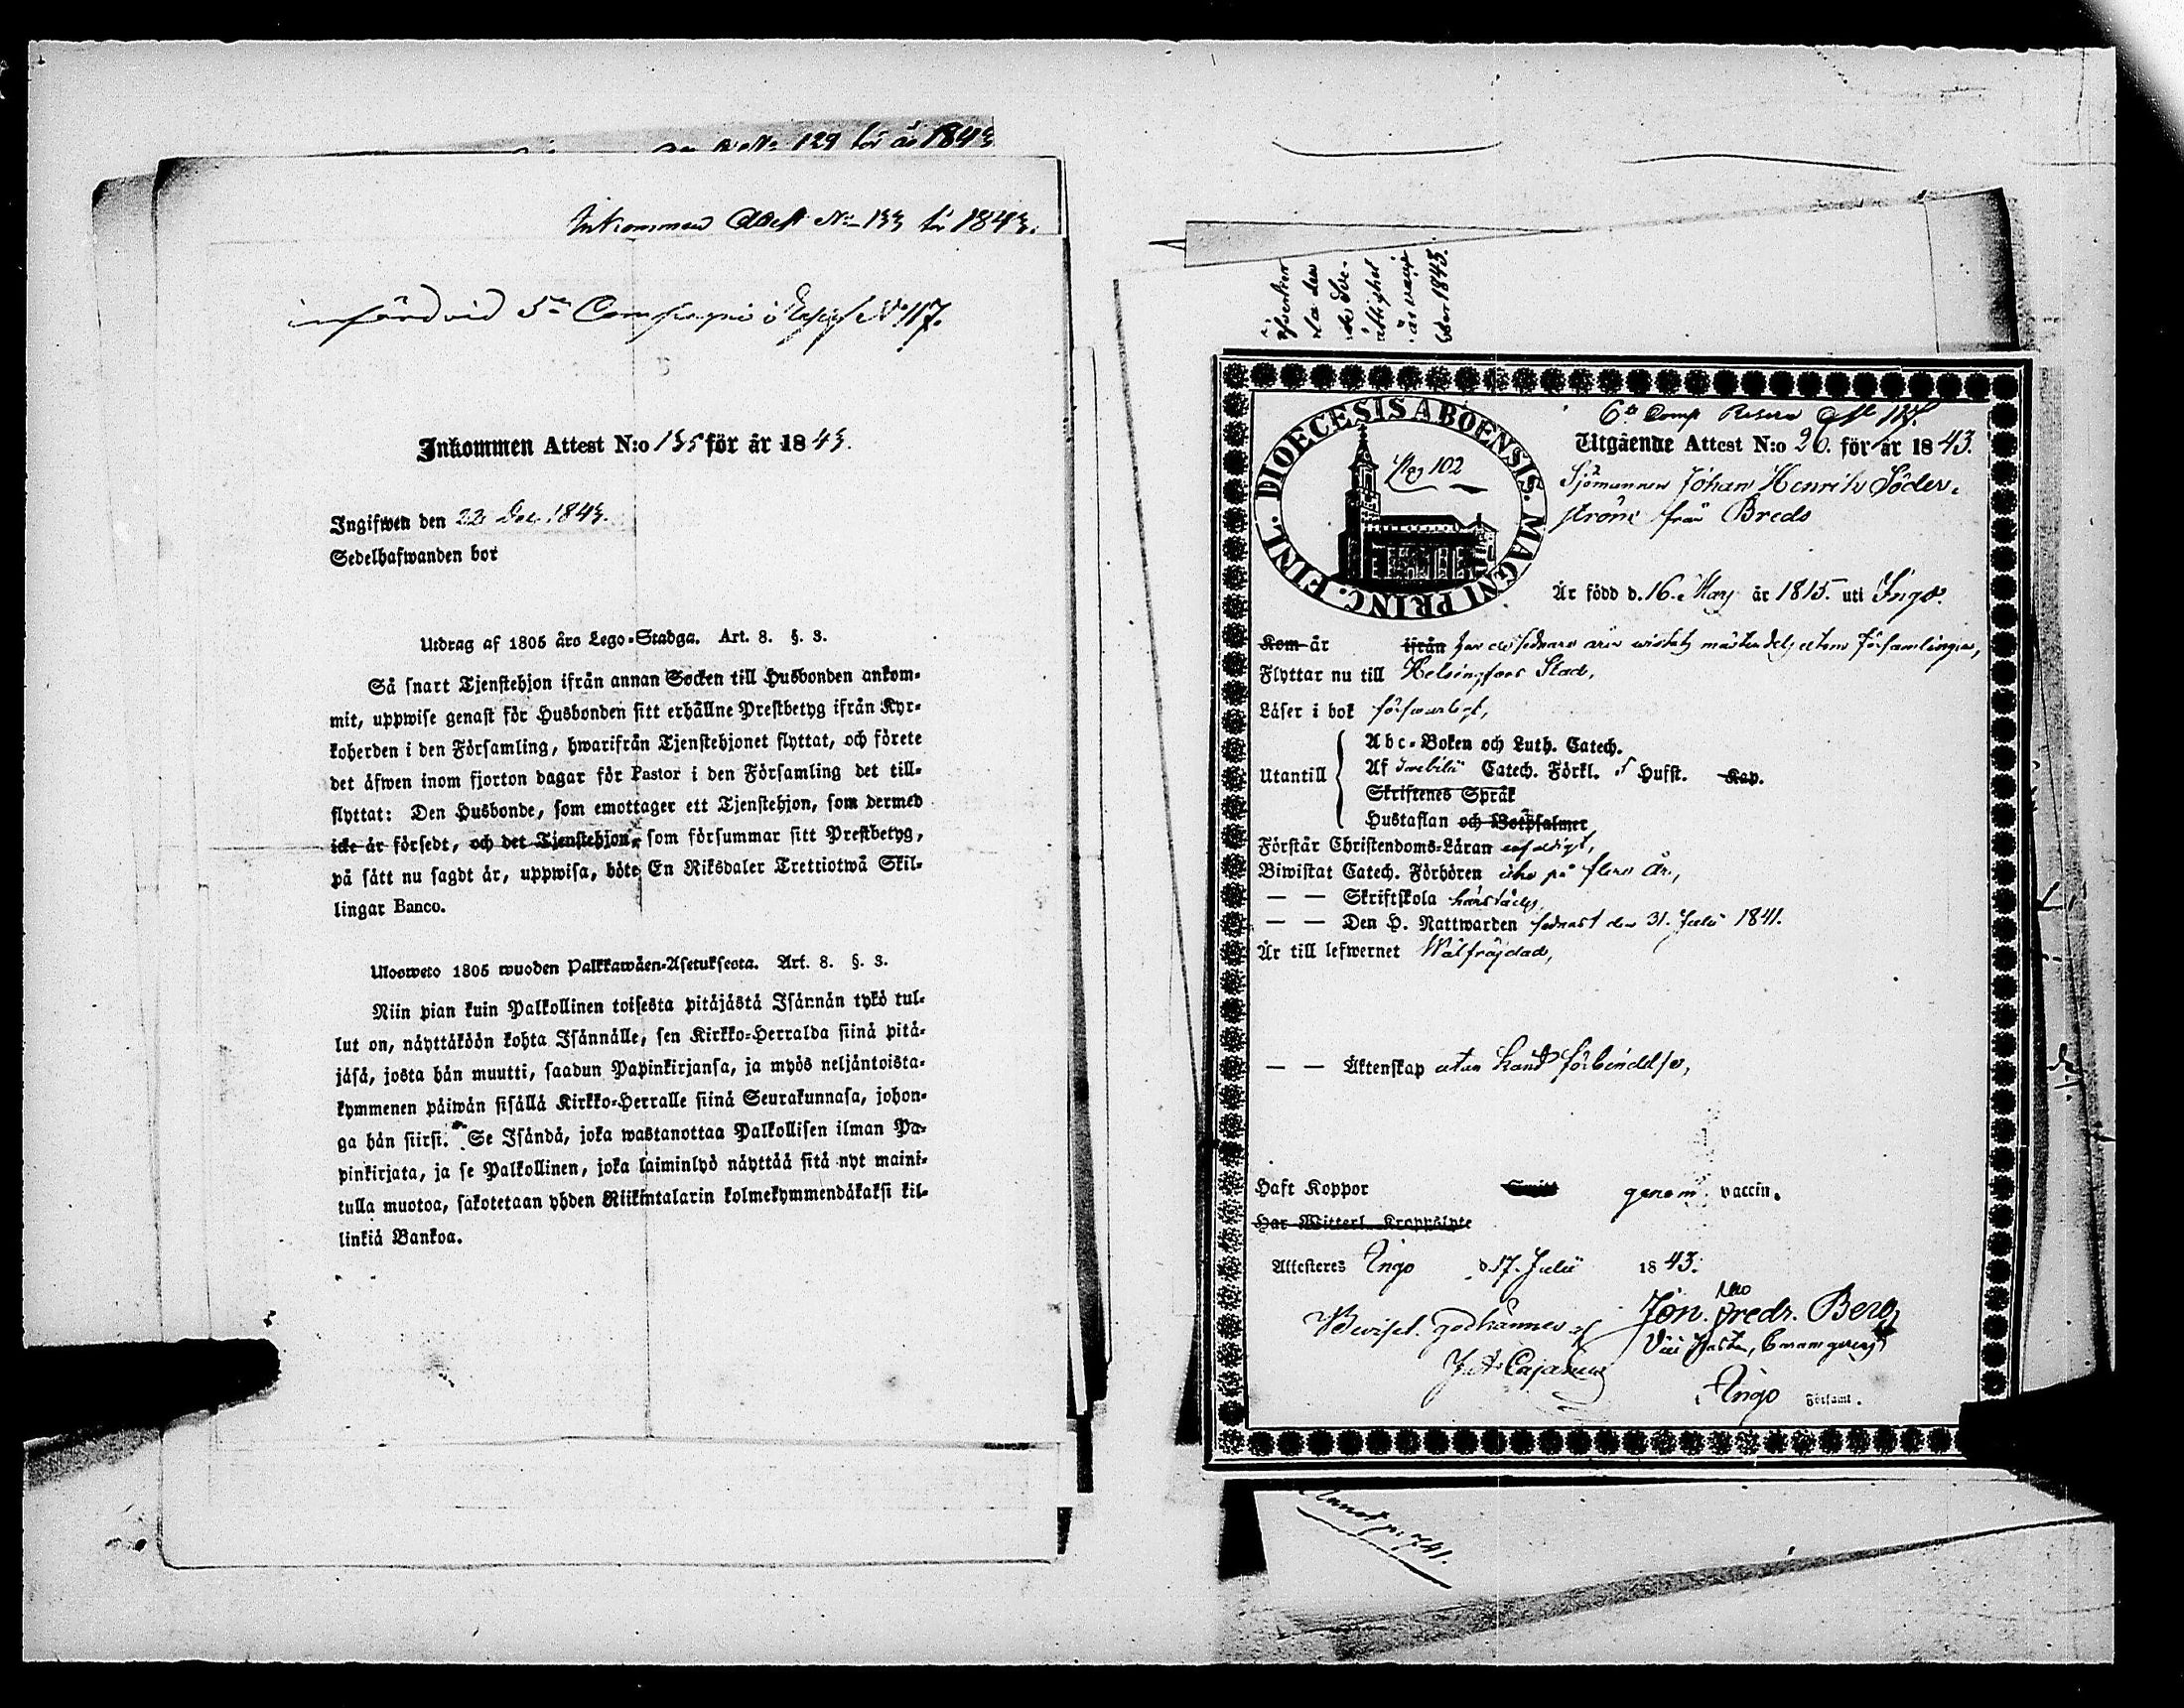 N:o 129 för år 1843
Inkommen Attest No 133 för 1843.
införd vid 5te Compagni i Exp: No 117.
Inkommen Attest N:o 135 för år 1843.
Ingifwen den 22 Dec. 1843.
Sedelhafwanden bor
Utdrag af 1805 års Lego-Stadga. Art. 8. §. 3.
Så snart Tjenstehjon ifrån annan Socken till Husbonden ankom-
mit, uppwise genast för Husbonden sitt erhållne Prestbetyg ifrån Kyr-
koherden i den Församling, hwarifrån Tjenstehjonet flyttat, och förete
det åfwen inom fjorton dagar för Pastor i den Församling det till-
flyttat: Den Husbonde, som emottager ett Tjenstehjon, som dermed
icke är försedt, och det Tjenstehjon, som försummar sitt Prestbetyg,
på sätt nu sagdt är, uppwisa, böte En Riksdaler Trettiotwå Skil-
lingar Banco.
Ulosweto 1805 wuoden Palkkawäen-Asetuksesta. Art. 8. §. 3.
Niin pian kuin Palkollinen toisesta pitäjästä Isännän tykö tul-
lut on, näyttäköön kohta Isännälle, sen Kirkko-Herralda siinä pitä-
jäsä, josta hän muutti, saadun Papinkirjansa, ja myös neljäntoista-
kymmenen päiwän sisällä Kirkko-Herralle siinä Seurakunnasa, johon-
ga hän siirsi. Se Isändä, joka wastanottaa Palkollisen ilman Pa-
pinkirjata, ja se Palkollinen, joka laiminlyö näyttää sitä nyt maini-
tulla muotoa, sakotetaan yhden Riikintalarin kolmekymmendäkaksi kil-
linkiä Bankoa.
6te Comp Reserv 117.
DIOECESIS ABOENSIS. MAGNI PRINC. FINL.
Pag 102
Utgående Attest N:o 26. för år 1843.
Sjömannen Johan Henrik Söder-
ström från Breds
Är född d. 16. May år 1815. uti Ingo.
Kom år ifrån har de sednare åren wistats mästendels utom Församlingen,
Flyttar nu till Helsingfors Stad,
Läser i bok försvarligt,
Utantill
Abc-Boken och Luth. Catech.
Af Svebilii Catech. Förkl. Huſt. Kap.
Skriftenes Språk
Hustaflan och Botpsalmer
Förstår Christendoms-Läran enfaldigt,
Biwistat Catech. Förhören icke på flera år,
— — Skriftskola härstädes,
— — Den H. Nattwarden sednast den 31. Julii 1841.
Är till lefwernet Wälfräjdad,
— — Äktenskap utan känd förbindelse,
Haft Koppor genom vaccin.
Har Witterl. Kroppslyte
Attesteres Ingo d. 17. Julii 1843.
Jon. Fredr. Berg
Beviset godkännes af
Vice Pastor,
J. A. Cajanus
Ingo Församl.